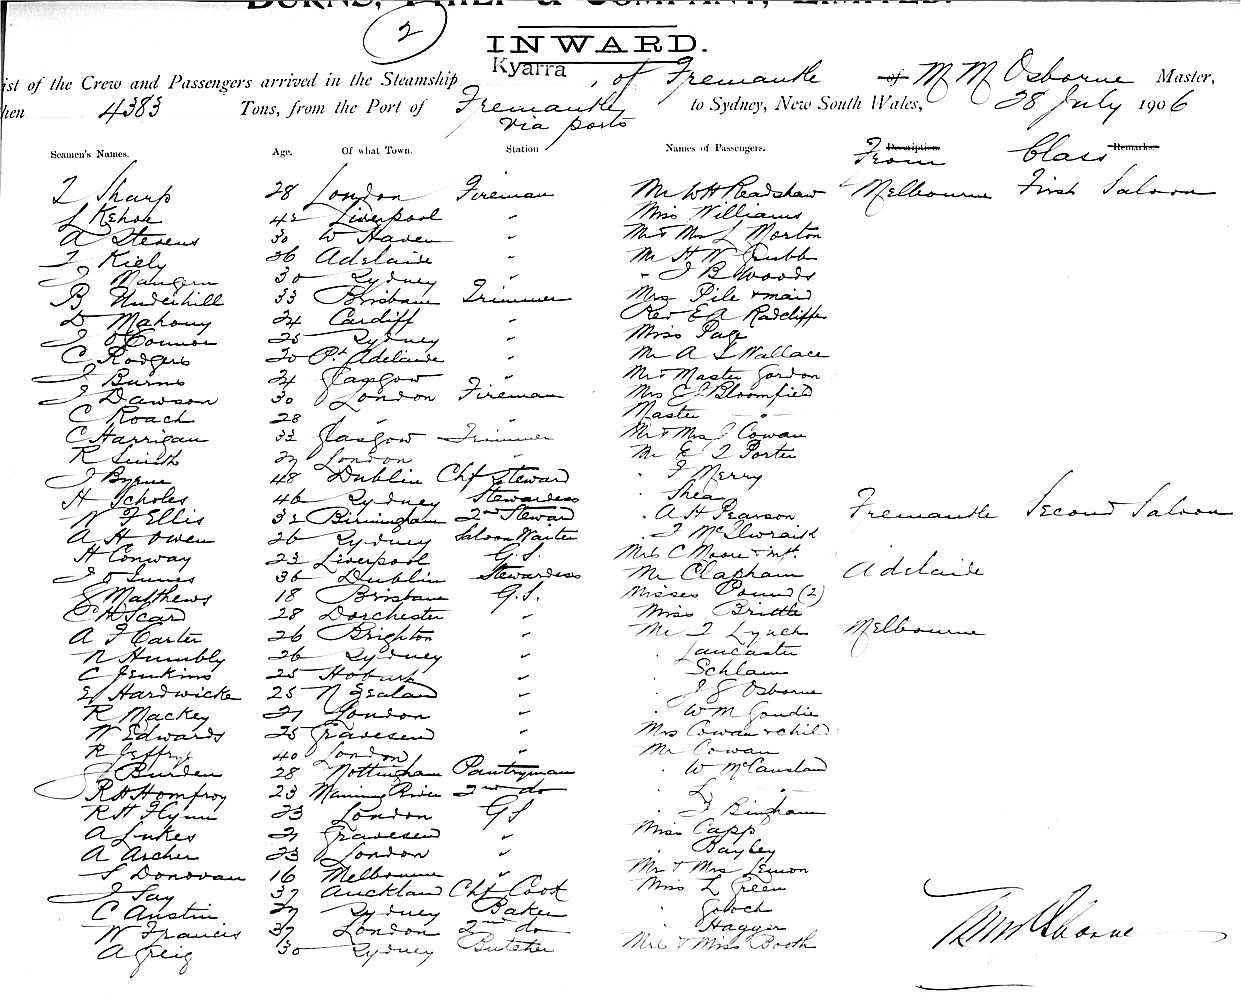 BURNS, PHILP & COMPANY, LIMITED.
2
INWARD.
ist of the Crew and Passengers arrived in the Steamship Kyarra, of Fremantle of M M Osborne Master,
hen 4383 Tons, from the Port of Fremantle via ports to Sydney, New South Wales, 28 July 1906
Seamen's Names. Age. Of what Town. Station Names of Passengers. Description From Class Remarks.
T Sharp 28 London Fireman Mr W H Readshaw Melbourne First Saloon
L Kehoe 42 Liverpool " Miss Williams
A Stevens 30 W Haven " Mr & Mrs L Morton
T Kiely 26 Adelaide " Mr H W Grubb
J Mangern 30 Sydney " " J B Woods
B Underhill 33 Brisbane Trimmer Mrs Pile & maid
D Mahony 24 Cardiff " Rev E A Radcliffe
J O'Connor 25 Sydney " Miss Page
C Rodgers 20 Pt Adelaide " Mr A L Wallace
J Burns 24 Glasgow " Mr & Master Gordon
J Dawson 30 London Fireman Mrs E J Bloomfield
C Roach 28 " " Master "
C Harrigan 32 Glasgow Trimmer Mr & Mrs J Cowan
R Smith 27 London " Mr E T Porter
J Byrne 48 Dublin Chf Steward " F Merry
H Scholes 46 Sydney Stewardess " Shea
W F Ellis 32 Birmingham 2nd Steward " A H Pearson Fremantle Second Saloon
A H Owen 26 Sydney Saloon Waiter " T McIlwraith
H Conway 23 Liverpool G.S. Mrs C Moore & inft.
J O Innes 36 Dublin Stewardess Mr Clapham Adelaide
J Matthews 18 Brisbane G.S. Misses Pound (2)
C H Scard 28 Dorchester " Miss Brittle
A F Carter 26 Brighton " Mr T Lynch Melbourne
N Humbly 26 Sydney " " Lancaster
C Jenkins 25 Hobart " " Schlam
E Hardwicke 25 N Zealand " " J G Osborne
R Mackey 27 London " " W M Goudie
W Edwards 25 Gravesend " Mrs Cowan & child
R Jeffry 40 London " Mr Cowan
J Burden 28 Nottingham Pantryman " W McCausland
R H Homfroy 23 Manning River 2nd do " L "
R H Flynn 23 London GS " J Bingham
A Lukes 27 Gravesend " Miss Capp
A Archer 23 London " " Bayley
S Donovan 16 Melbourne " Mr & Mrs Lemon
J Say 37 Auckland Chf Cook Miss L Green
C Austin 27 Sydney Baker " Gooch
W Francis 37 London 2nd do " Hagger
A Greig 30 Sydney Butcher Mrs & Miss Booth
M M Osborne